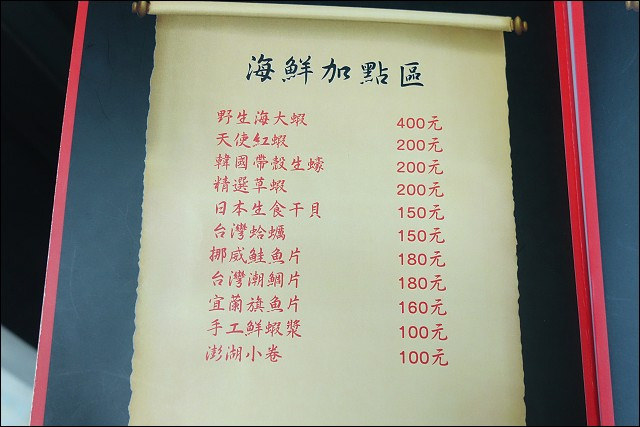 海鮮加點區
野生海大蝦 400元
天使紅蝦 200元
韓國帶殼生蠔 200元
精選草蝦 200元
日本生食干貝 150元
台灣蛤蠣 150元
挪威鮭魚片 180元
台灣潮鯛片 180元
宜蘭旗魚片 160元
手工鮮蝦漿 100元
澎湖小卷 100元